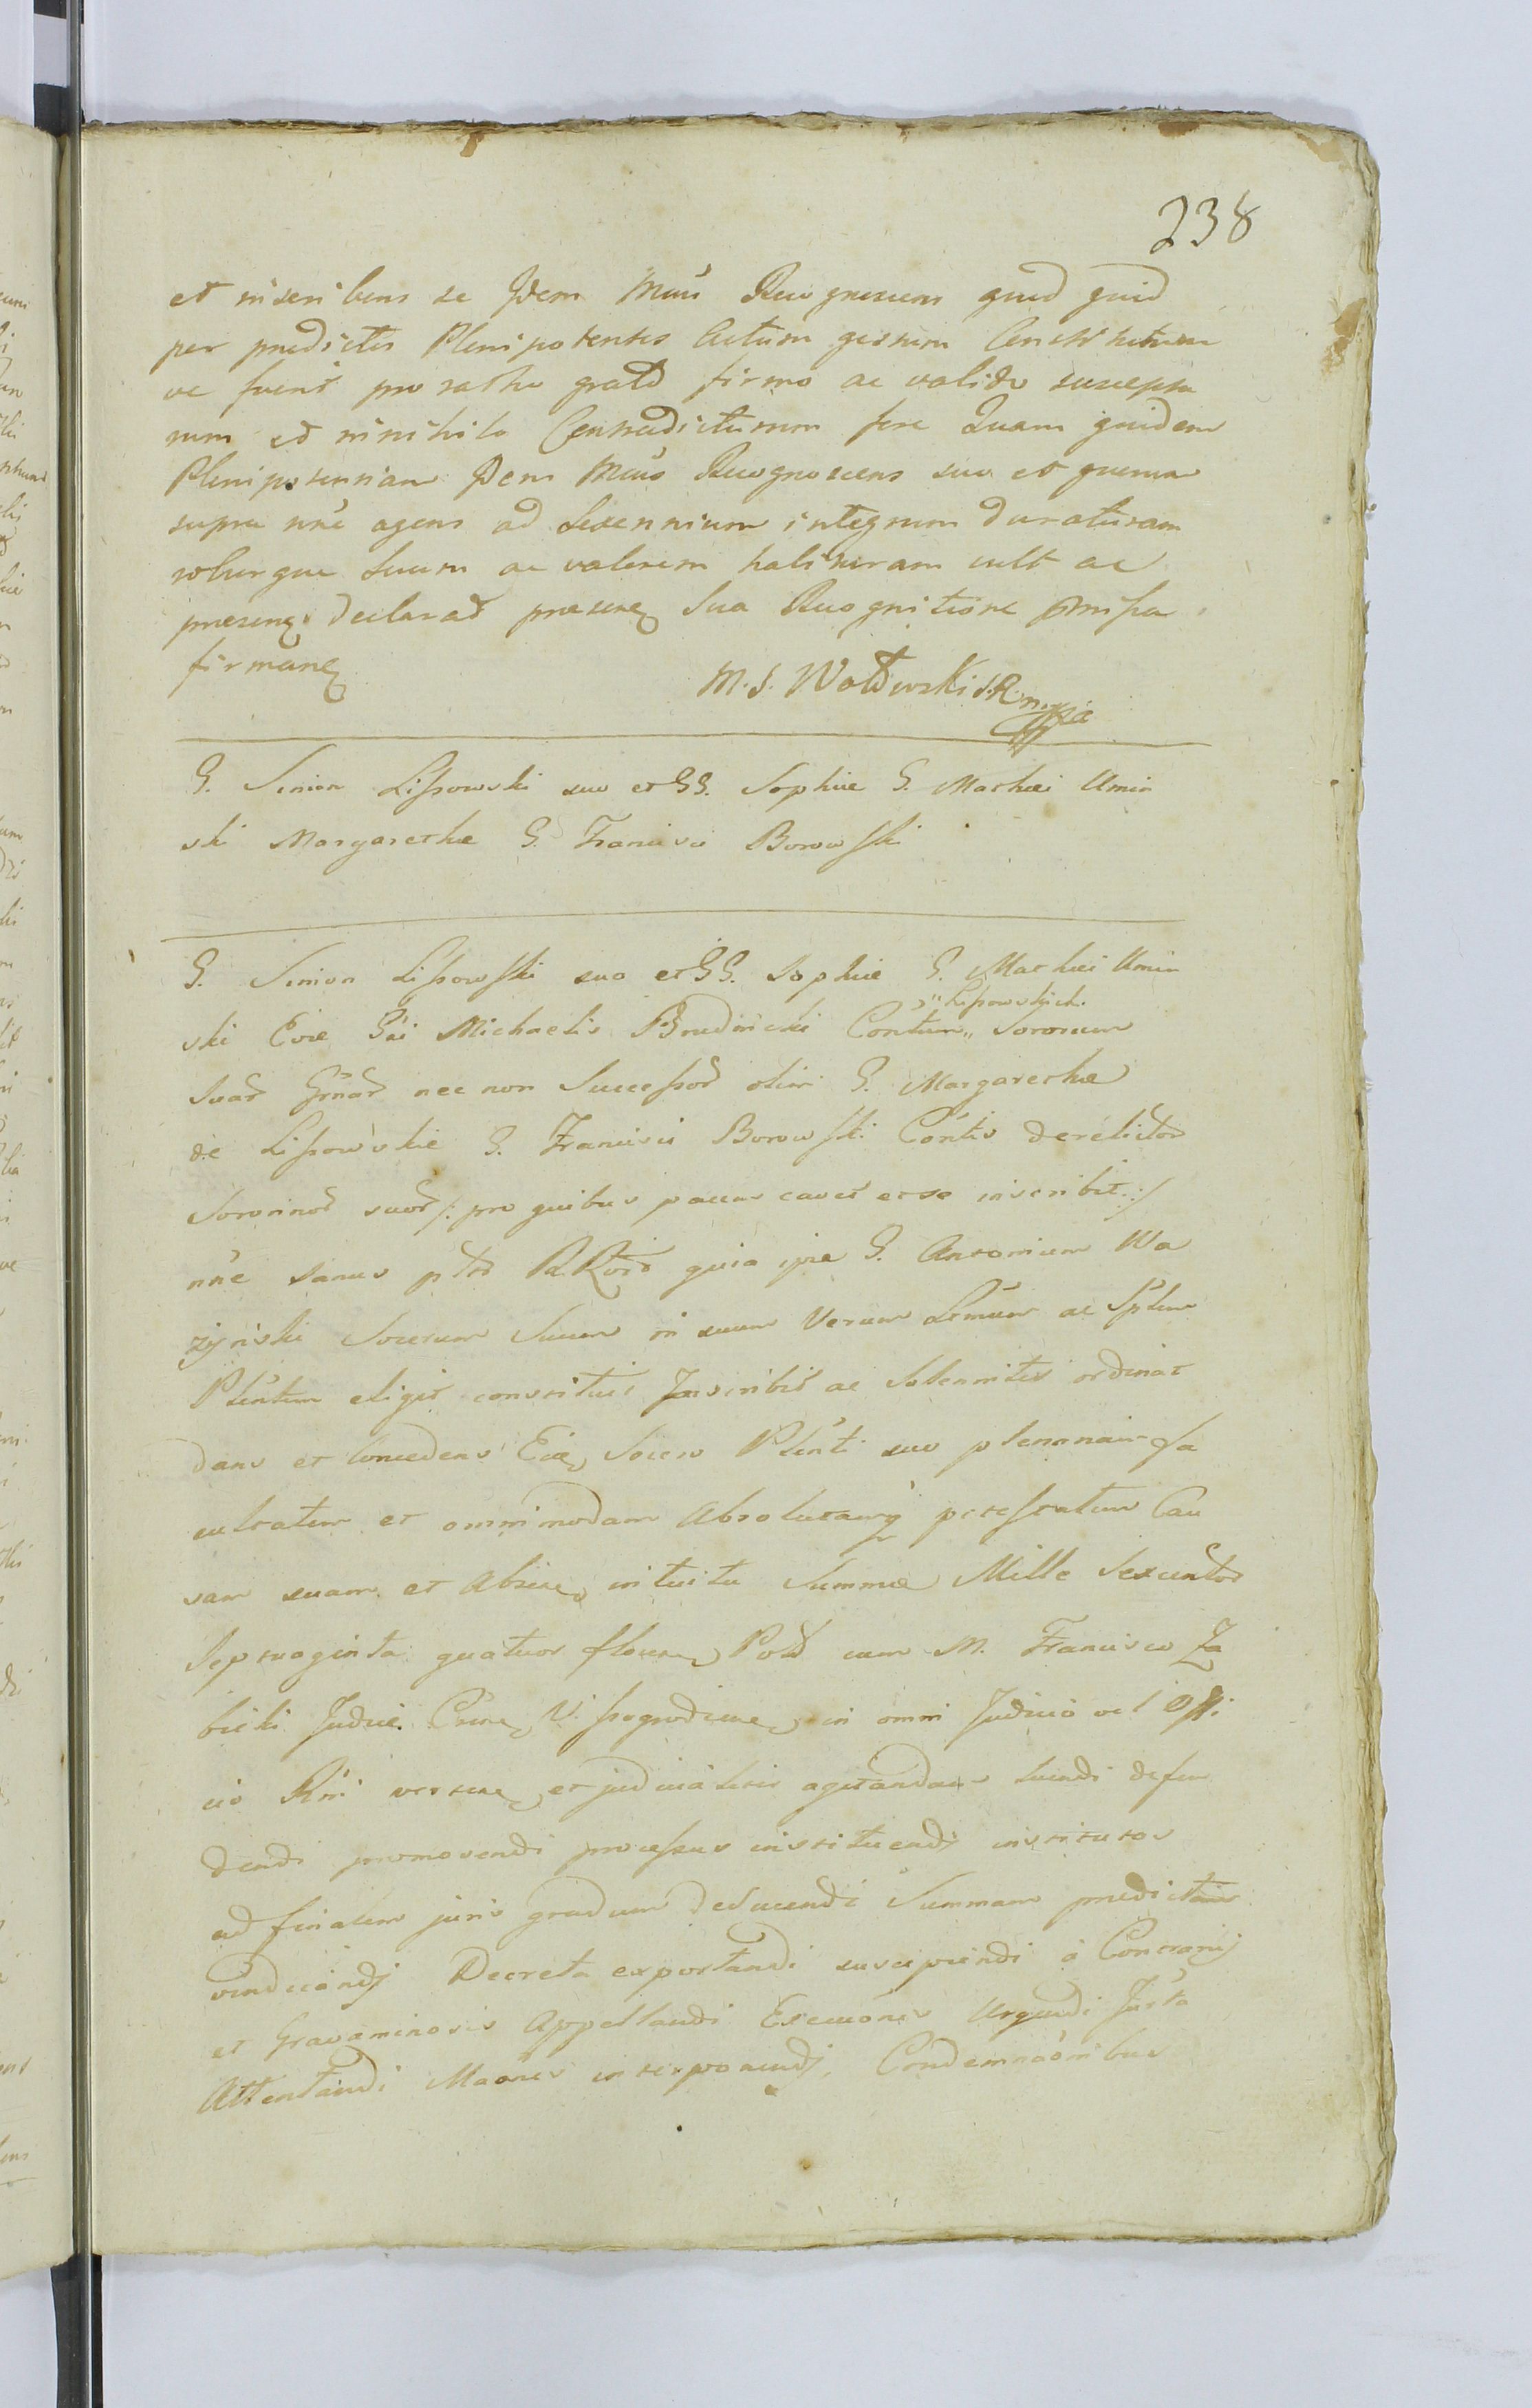 238
et inseribens se Idem Mcus Recognoscens quod quid
per predictos Plenipotentes Actum gestum Constitutum
ve fuerit pro ratho grato firmo ac valido susceptu
rum et ninihilo Contradicturum fore Quam quidem
Plenipotentiam Idem Mcus Recognoscens suo et quorum
supra nne agens ad Sexennium integrum duraturam
roburque suum ac valorem habituram vult ac
presenq declarat presenq Sua Recognitione pmissa
firmanq
M. S. Wołdwski S.R. mppia
G. Simon Lissowski suo et GG. Sophiæ G. Mathæi Umin
ski Margarethæ G. Francisci Borowski
G. Simon Lissowski suo et GG. Sophiæ G. Mathæi Umin
„Lissowskich.
ski Evæ Gsi Michaelis Brudnicki Contum„ Sororum
Suar Grnar nec non Successor olim G. Margarethæ
de Lissowskie G. Francisci Borowski Contis derelictor
Sororinor suor /: pro quibus pacens cavet et se inscribit :/
nne sanus ptr R. Rord quia ipse G. Antonium Wa
zynski Socerum Suum in suum Verum Lemum ac Splem
Plentem eligit constituit Inscribit ac Solemniter ordinat
dans et Concedens Eidq Socero Plenti suo plenmam fa
cultatem et omnimodam Absolutamq potestatem Cau
sam suam et Absneq intuitu Summæ Mille Sexcentor
Septuaginta quatuor florenq Pold cum M. Francisco Za
bicki Judice Csene Vissogrodiene in omni Judicio vel Offi
cio Rni versene et judicialiter agitandam tuendi defen
dendi promovendi processus instituendi institutos
ad finalem juris gradum deducendi Summam predictam
vindicandj Decreta exportandi suscipiendi a Contrarijs
et Gravaminosis Appellandi Execuones Urgendi Jurto
Attentandi Maones interponendj, Condemnaonibus